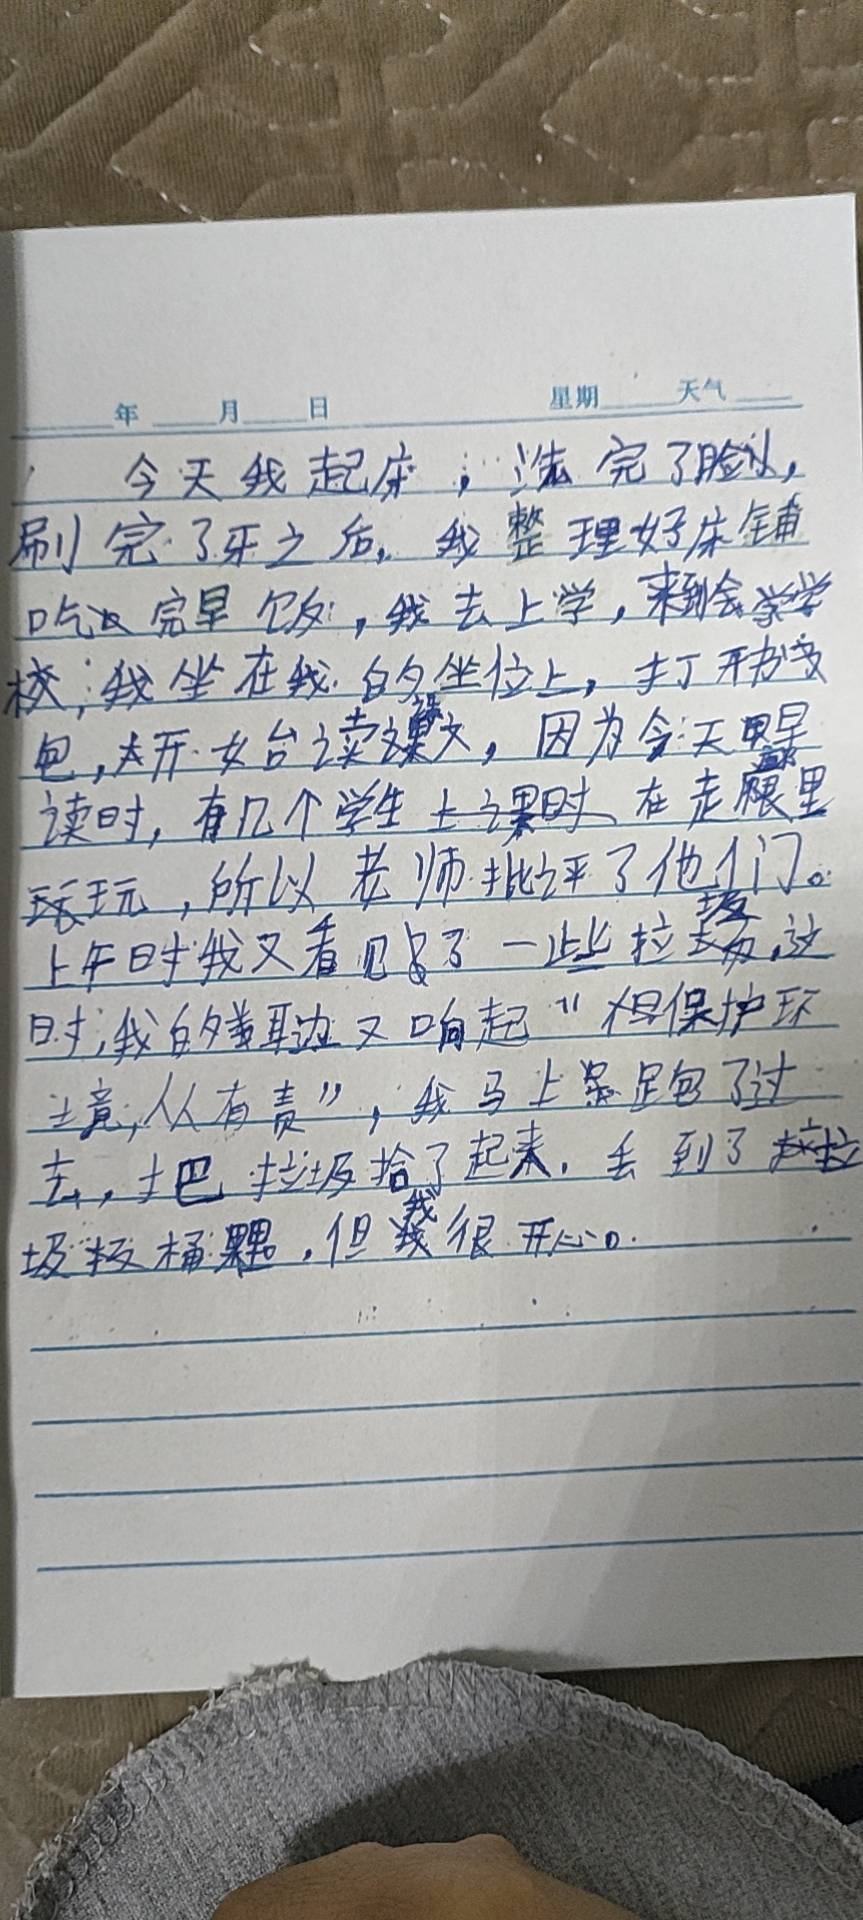 年 月 日 星期 天气
今天我起床，洗完了脸，
刷完了牙之后，我整理好床铺
吃完早饭，我去上学，来到学
校，我坐在我的坐位上，打开
包，开始读课文，因为今天早
读时，有几个学生上课时在走廊里
玩，所以老师批评了他们。
上午时我又看见了一些垃圾，这
时，我的耳边又响起"保护环
境，人人有责"，我马上跑了过
去，把垃圾拾了起来，丢到了垃
圾桶里，但我很开心。